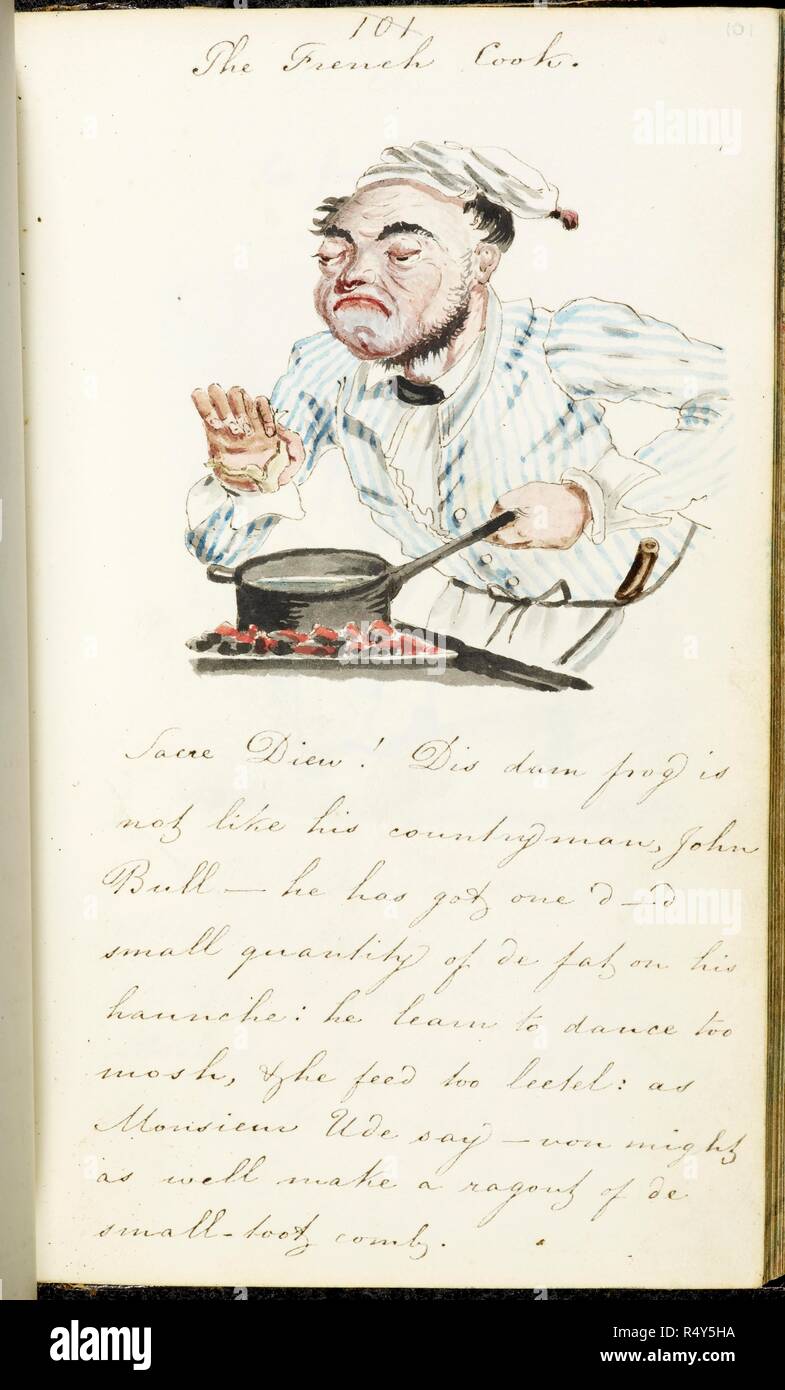 101
101
The French Cook.
Sacre Dieu! Dis dam frog is
not like his countryman, John
Bull — he has got one d—d
small quantity of de fat on his
haunche: he learn to dance too
mosh, & he feed too leetel: as
Monsieur Ude say — von might
as well make a ragout of de
small-toot comb.
alamy
alamy
alamy
Image ID: R4Y5HA
www.alamy.com